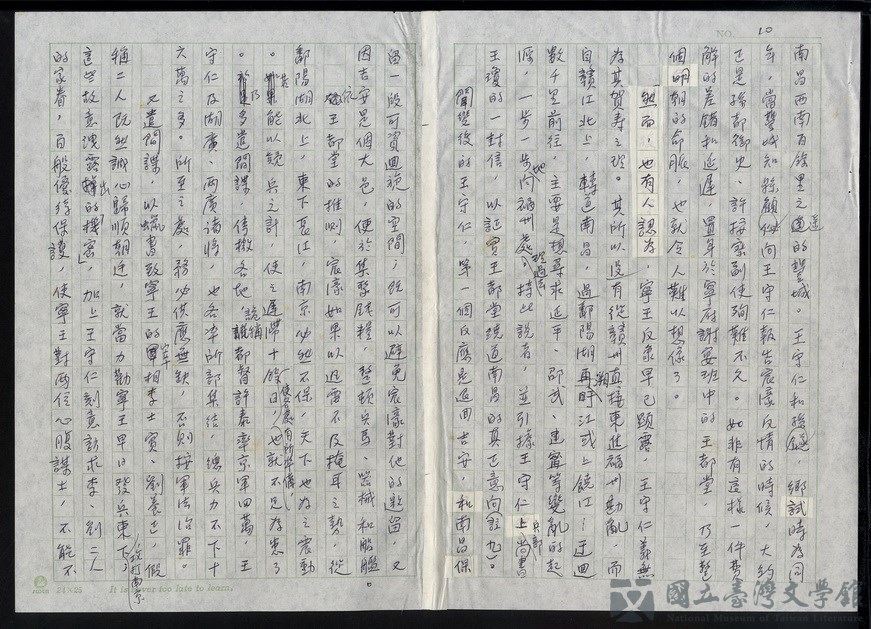 NO. 10
南昌西南百餘里之遙的豐城。王守仁和孫燧,鄉試時為同
年,當豐城知縣顧佖向王守仁報告宸濠反情的時候,大約
正是孫都御史、許按察副使殉難不久。如非有這樣一件費
解的差錯和延遲,置身於寧府謝宴班中的王都堂,乃至整
個明朝的命脈,也就令人難以想像了。
然而,也有人認為,寧王反象早已顯露,王守仁義無
為其賀壽之理。其所以沒有從贛州直接東進福州勘亂,而
自贛江北上,轉道南昌,過鄱陽湖再溯江或上饒江;迂迴
數千里前往,主要是想尋求延平、邵武、建寧等變亂的起
源,一步一步地向福州處理過去。持此說者,並引據王守仁上兵部尚書
王瓊的一封信,以証實王都堂繞道南昌的真正意向(註九)。
聞變後的王守仁,第一個反應是退回吉安,和南昌保
留一段可資迴旋的空間;既可以避免宸濠對他的邀留,又
因吉安是個大邑,便於集聚錢糧,整頓兵馬、器械和船艦。
依王都堂的推測,宸濠如果以迅雷不及掩耳之勢,從
鄱陽湖北上,東下長江,南京必然不保,天下也為之震動
。若能以疑兵之計,使之遲滯十餘日,使處處有所準備,也就不足為患了
。乃多遣間諜,傳檄各地,詭稱都督許泰率京軍四萬,王
守仁及湖廣、兩廣諸將,也各率所部集結,總兵力不下十
六萬之多。所至之處,務必供應無缺,否則按軍法治罪。
又遣間諜,以蠟書致寧王的宰相李士實、劉養正,假
稱二人既然誠心歸順朝廷,就當力勸寧王早日發兵東下攻打南京。
這些故意洩露出的「機密」,加上王守仁刻意訪求李、劉二人
的家眷,百般優待保護,使寧王對兩位心腹謀士,不能不
24×25 It is never too late to learn.
國立臺灣文學館
National Museum of Taiwan Literature